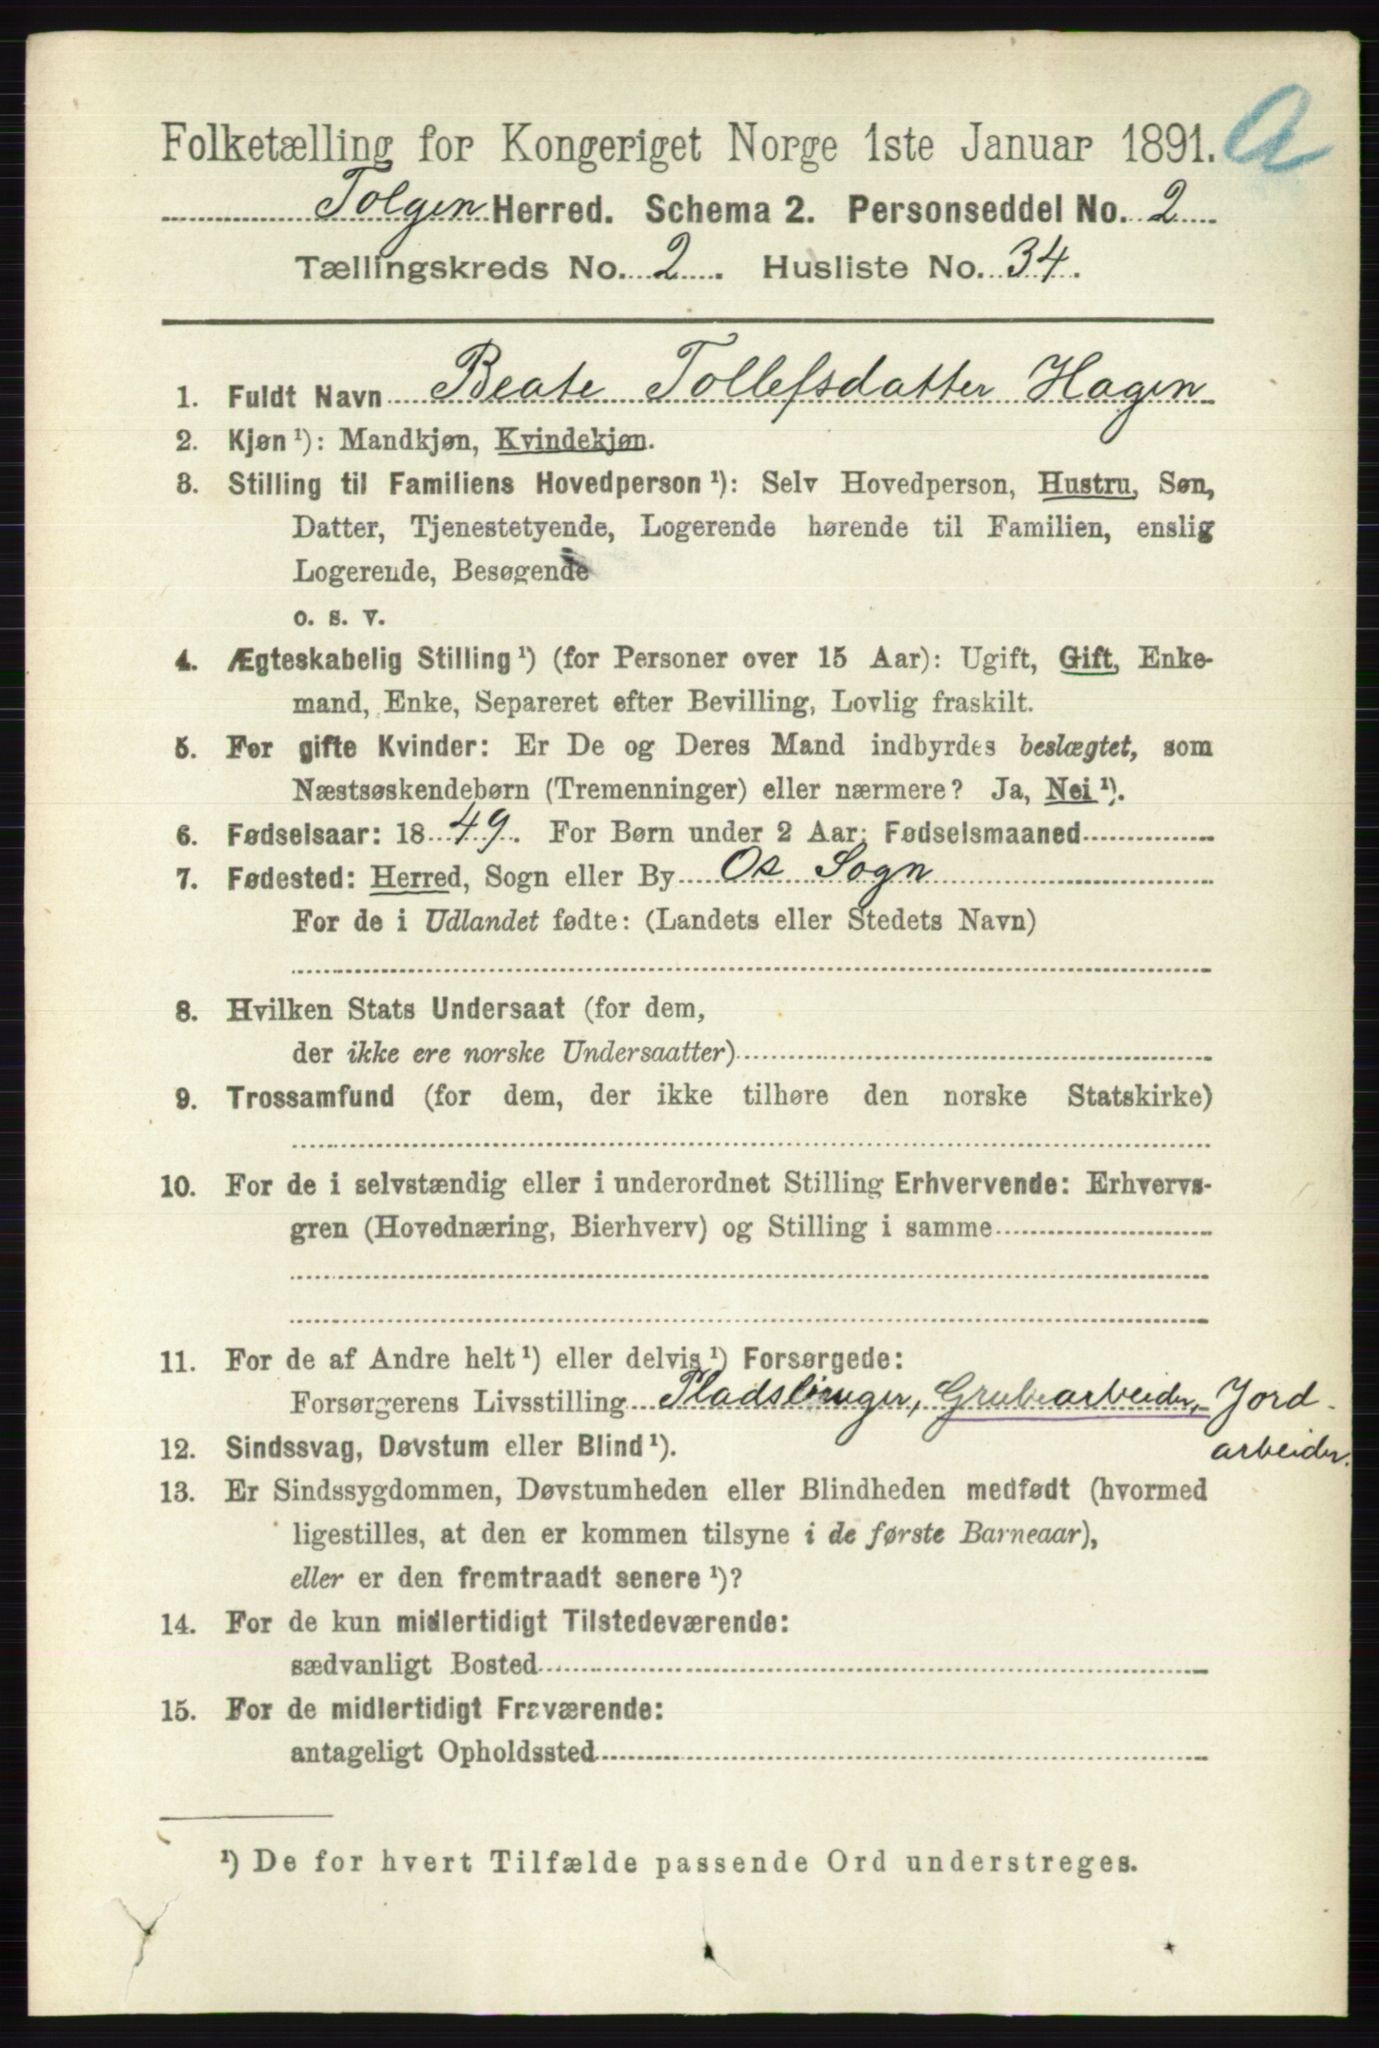 A
Folketælling for Kongeriget Norge 1ste Januar 1891.
Tolgen Herred. Schema 2. Personseddel No. 2
Tællingskreds No. 2. Husliste No. 34.
1. Fuldt Navn Beate Tollefsdatter Hagen
2. Kjøn ¹): Mandkjøn, Kvindekjøn.
3. Stilling til Familiens Hovedperson ¹): Selv Hovedperson, Hustru, Søn,
Datter, Tjenestetyende, Logerende hørende til Familien, enslig
Logerende, Besøgende
o. s. v.
4. Ægteskabelig Stilling ¹) (for Personer over 15 Aar): Ugift, Gift, Enke-
mand, Enke, Separeret efter Bevilling, Lovlig fraskilt.
5. For gifte Kvinder: Er De og Deres Mand indbyrdes beslægtet, som
Næstsøskendebørn (Tremenninger) eller nærmere? Ja, Nei ¹).
6. Fødselsaar: 1849. For Børn under 2 Aar: Fødselsmaaned
7. Fødested: Herred, Sogn eller By Os Sogn
For de i Udlandet fødte: (Landets eller Stedets Navn)
8. Hvilken Stats Undersaat (for dem,
der ikke ere norske Undersaatter)
9. Trossamfund (for dem, der ikke tilhøre den norske Statskirke)
10. For de i selvstændig eller i underordnet Stilling Erhvervende: Erhvervs-
gren (Hovednæring, Bierhverv) og Stilling i samme
11. For de af Andre helt ¹) eller delvis ¹) Forsørgede:
Forsørgerens Livsstilling Pladsbruger, Grubearbeider, Jord-
arbeider.
12. Sindssvag, Døvstum eller Blind ¹).
13. Er Sindssygdommen, Døvstumheden eller Blindheden medfødt (hvormed
ligestilles, at den er kommen tilsyne i de første Barneaar),
eller er den fremtraadt senere ¹)?
14. For de kun midlertidigt Tilstedeværende:
sædvanligt Bosted
15. For de midlertidigt Fraværende:
antageligt Opholdssted
¹) De for hvert Tilfælde passende Ord understreges.